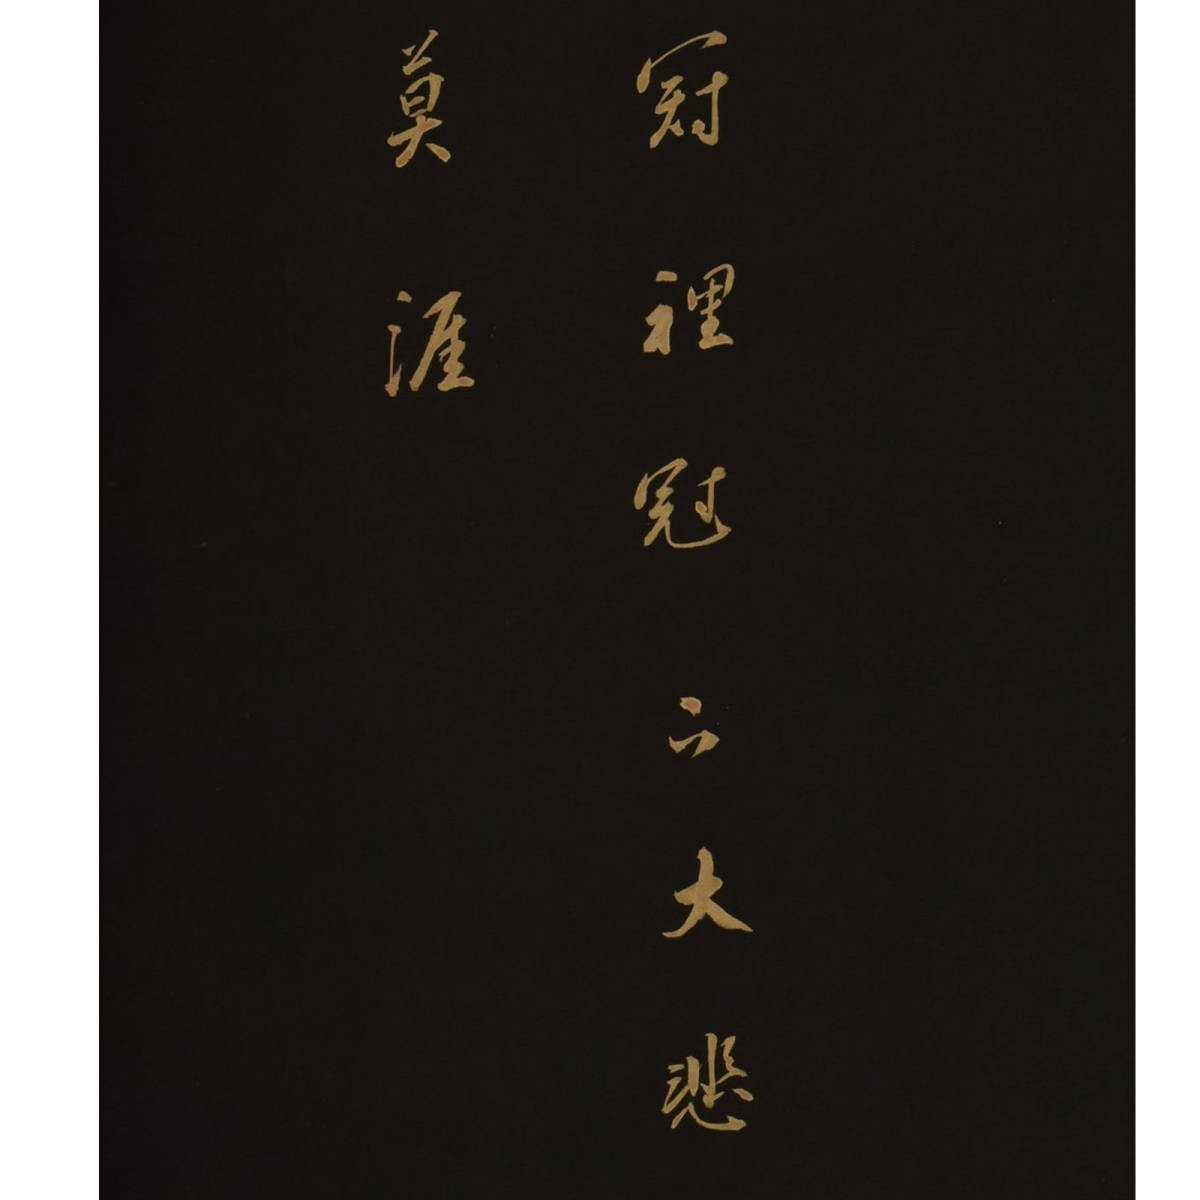 冠裡冠六大悲
莫涯